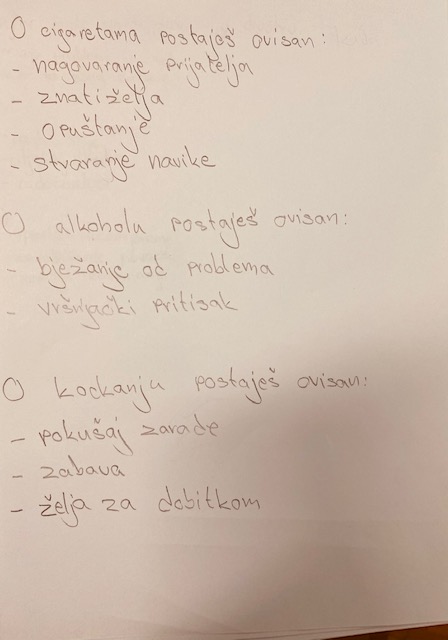 O cigaretama postaješ ovisan:
- nagovaranje prijatelja
- znatiželja
- opuštanje
- stvaranje navike
O alkoholu postaješ ovisan:
- bježanje od problema
- vršnjački pritisak
O kockanju postaješ ovisan:
- pokušaj zarade
- zabava
- želja za dobitkom